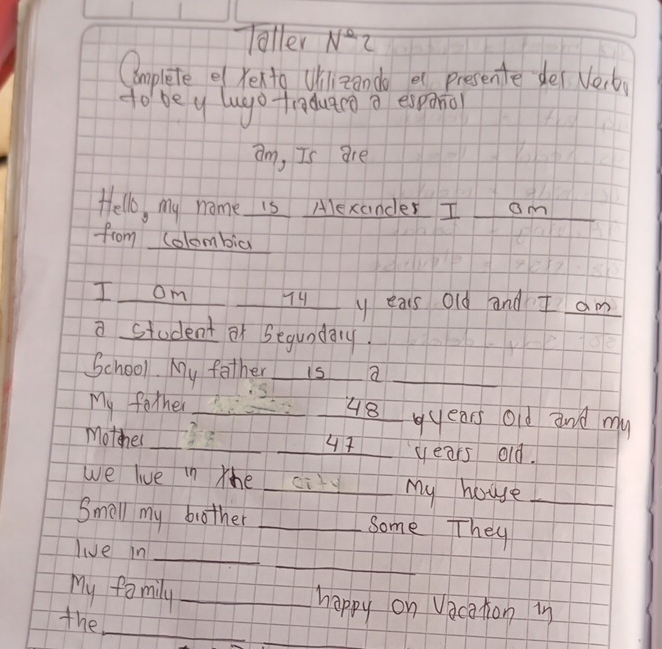 Taller Nº2
Complete el texto Utilizando el presente del Verbo
to be y luyo traduzca a español
am, Is are
Hello, my name is Alexander I am
from Colombia
I am 14 years old and I am
a student at Segundary.
School. My father is a
My father is 48 years old and my
Mother is 47 years old.
We live in the city My house
Small my brother some They
live in
My family happy on Vacation in
the